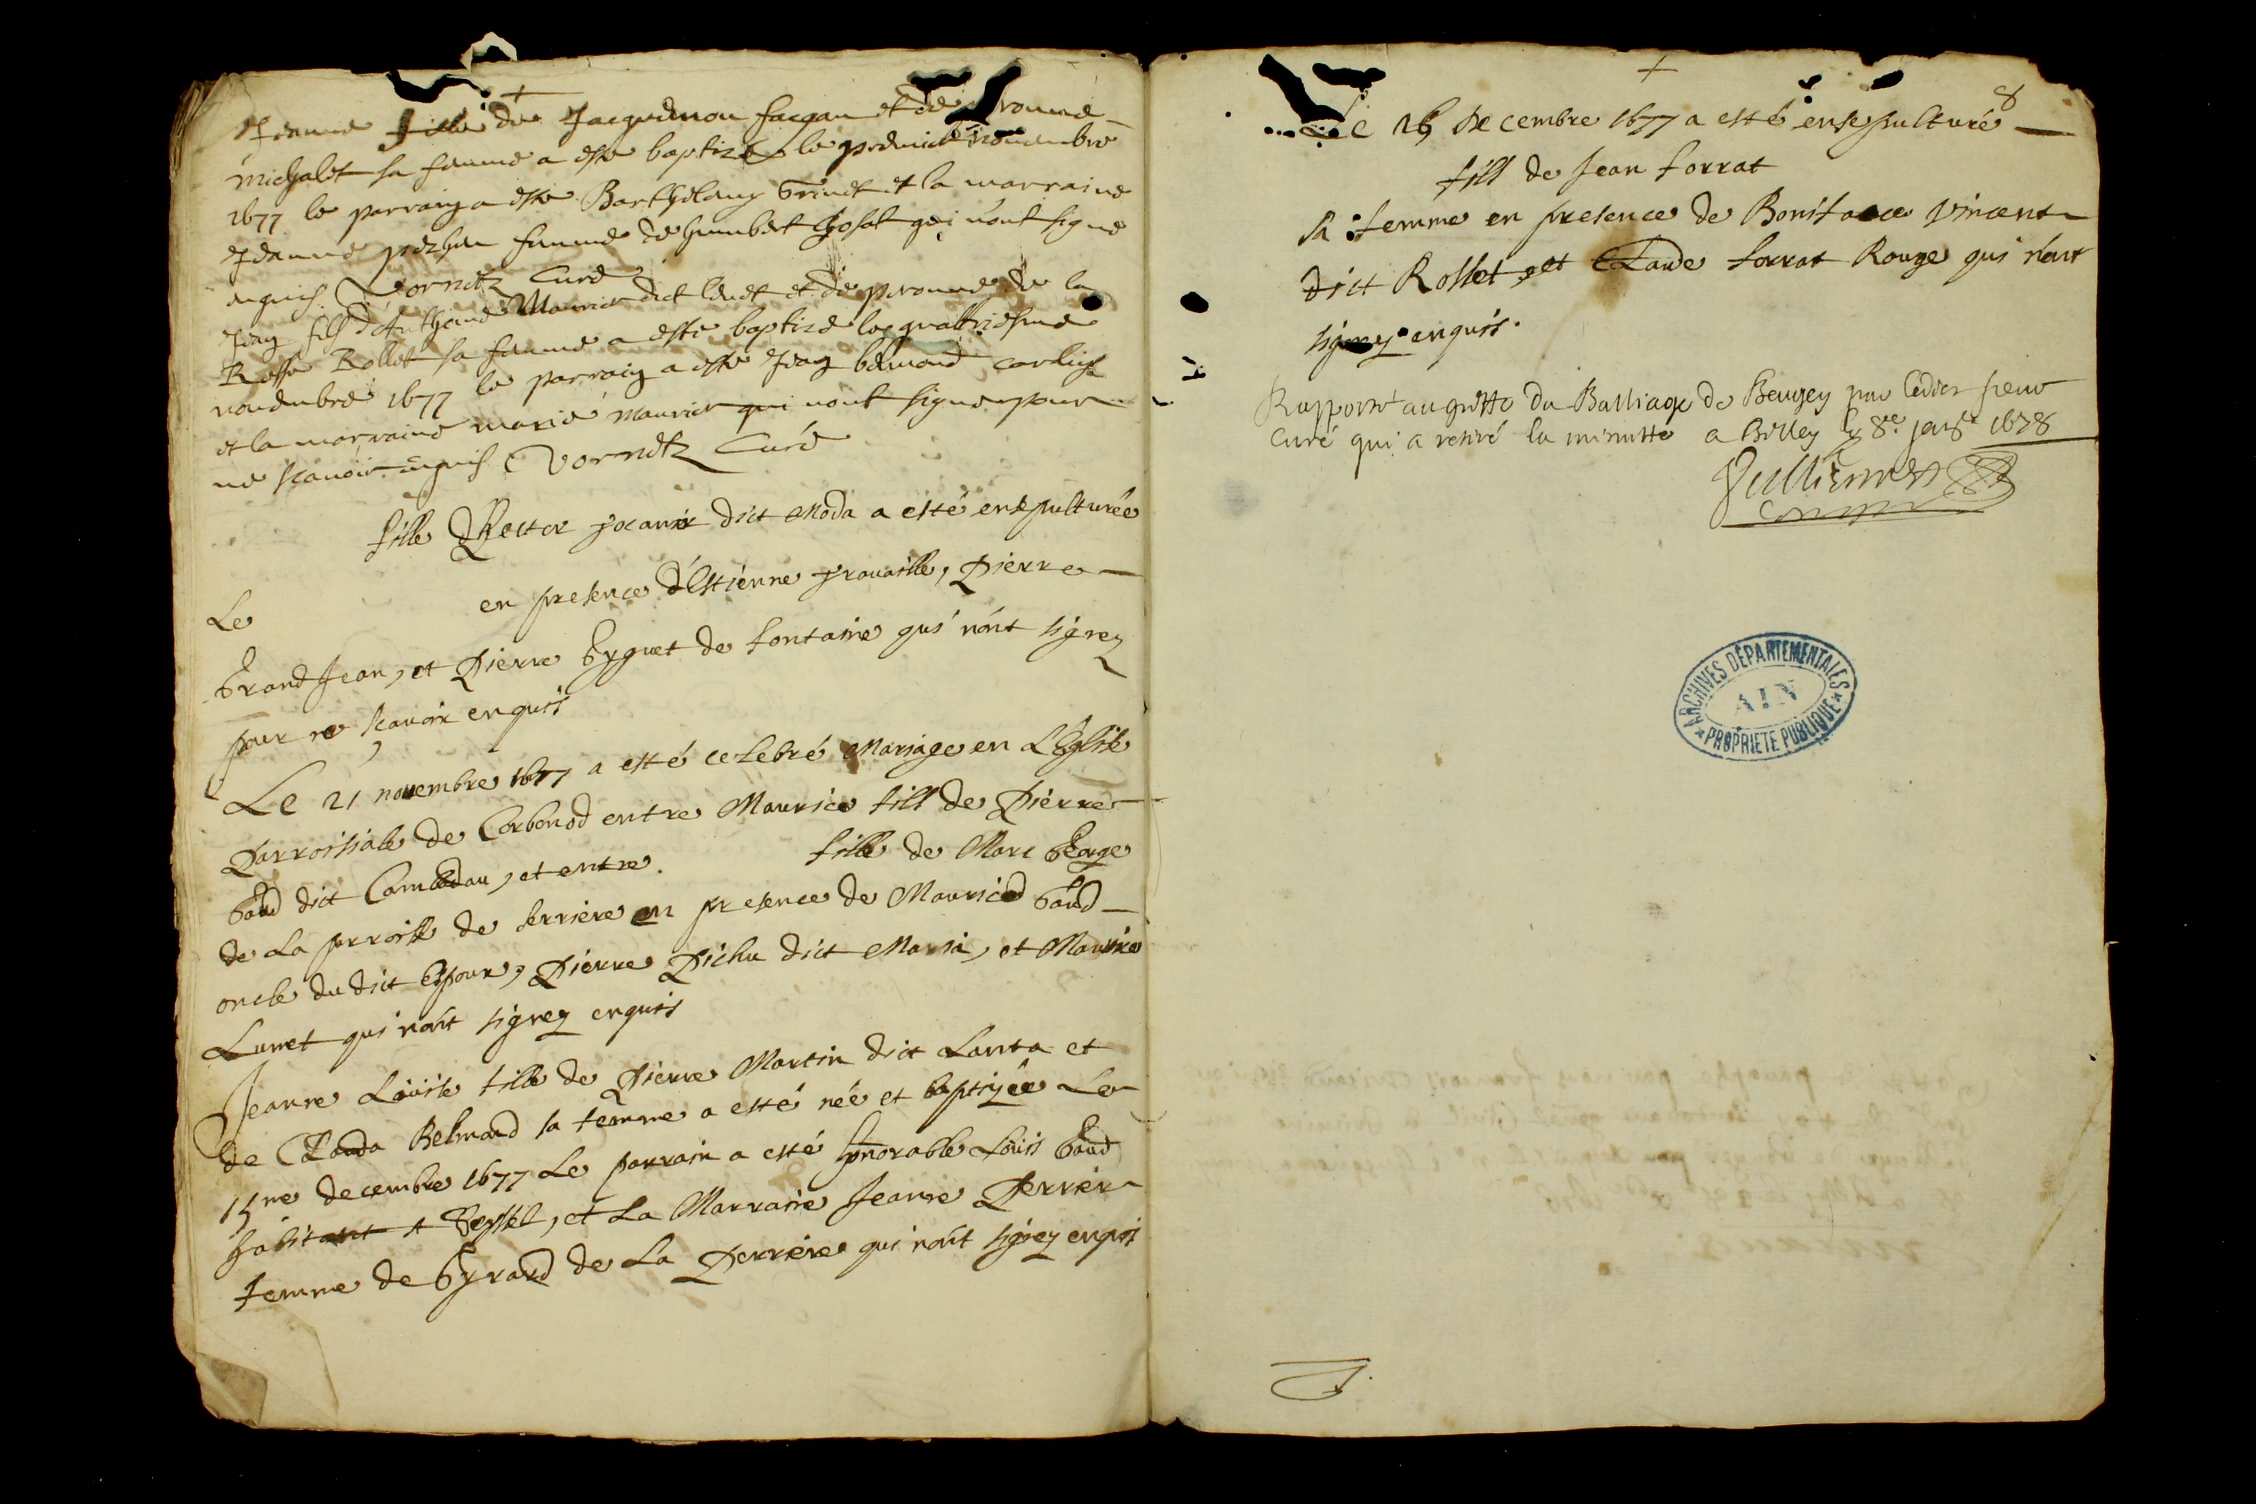 Jeanne fille de Jacquemou et de
Michalet sa femme a esté baptizé le premier novembre
1677 le parrain a esté Barthelemy Brinet et la marraine
Jeanne femme de humbert qui n'ont signé
enquis Vornetz Curé
Jean fils d'Anthoine Mauris dict et de peronne de la
Rosse Rollet sa femme a esté baptizé le quattriesme
novembre 1677 le parrain a esté Jean
et la marraine marie Maurier qui n'ont signe pour
ne scavoir enquis Vornetz Curé
fille dhector dict Moda a esté ensepulturée
Le en presence d'Estienne Pierre
Grand Jean, et Pierre Gyguet de fontaine qui n'ont signez
pour ne scavoir enquis
Le 21 novembre 1677 a esté celebré Mariage en L'Eglise
Parroissiale de Corbonod entre Maurice fill de Pierre
baud dict et entre fille de Marc George
de La parroisse de serriere en presence de Maurice baud
oncle du dict Espoux, Pierre Pichu dict Maria, et Maurice
Lunet qui n'ont signez enquis
Jeanne Louise fille de Pierre Martin dict Lanta et
de Clauda Belmand sa femme a esté née et baptizée Le
15me decembre 1677 Le parrain a esté honorable Louis baud
habitant A Seyssel, et La Marraine Jeanne Perrier
femme de Gyrard de La Perriere qui n'ont signez enquis
8
Le 26 decembre 1677 a esté ensepulturé
fill de Jean forrat
sa femme en presence de Boniface Vincent
dict Rosset, et Claude forrat Rouge qui n'ont
signez enquis.
Rapporté au greffe du Balliage de Beugey par ledict sieur
curé qui a retiré la minutte a Belley le 8e janr 1678
ARCHIVES DÉPARTEMENTALES
AIN
PROPRIETE PUBLIQUE